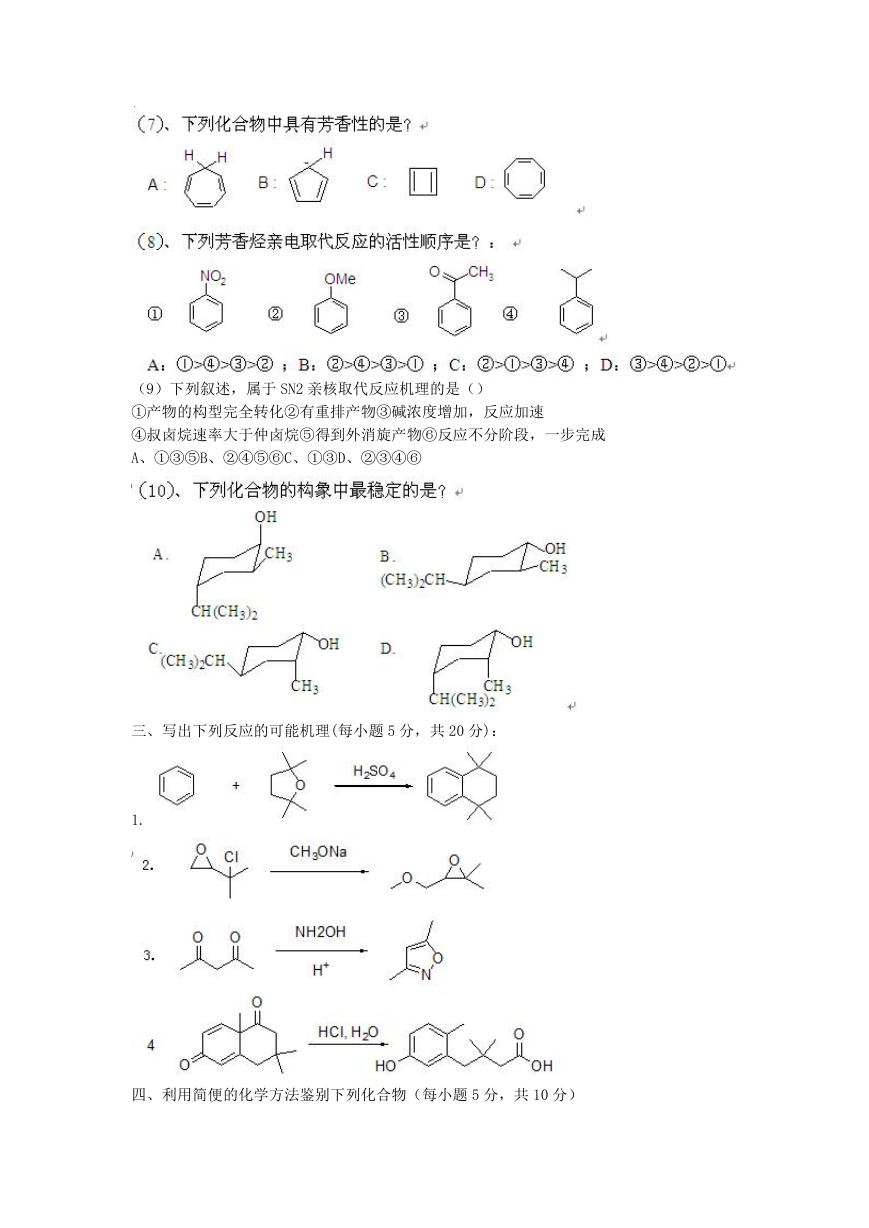 (7)、下列化合物中具有芳香性的是？
A： H H B： - H C： D：
(8)、下列芳香烃亲电取代反应的活性顺序是？：
① NO2 ② OMe ③ O CH3 ④
A：①>④>③>②；B：②>④>③>①；C：②>①>③>④；D：③>④>②>①
（9）下列叙述，属于 SN2 亲核取代反应机理的是（）
①产物的构型完全转化②有重排产物③碱浓度增加，反应加速
④叔卤烷速率大于仲卤烷⑤得到外消旋产物⑥反应不分阶段，一步完成
A、①③⑤B、②④⑤⑥C、①③D、②③④⑥
(10)、下列化合物的构象中最稳定的是？
A. OH CH3 CH(CH3)2
B. OH CH3 (CH3)2CH
C. (CH3)2CH OH CH3
D. OH CH3 CH(CH3)2
三、写出下列反应的可能机理(每小题 5 分，共 20 分)：
1. + O H2SO4
2. O Cl CH3ONa O O
3. O O NH2OH H+ O N
4 O O HCl, H2O HO O OH
四、利用简便的化学方法鉴别下列化合物（每小题 5 分，共 10 分）